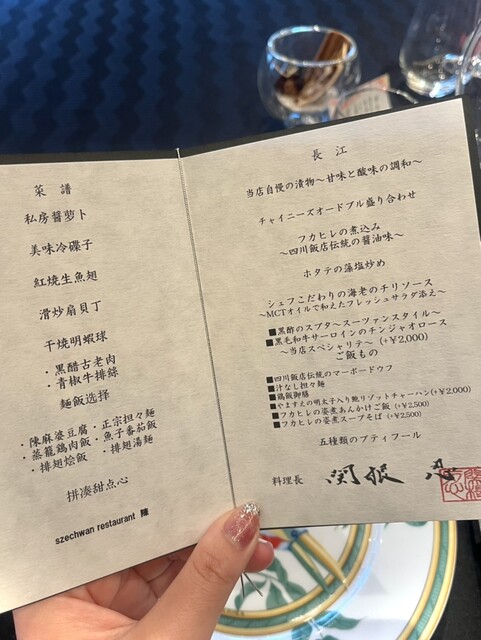 菜譜
私房醬萝卜
美味冷碟子
紅燒生魚翅
滑炒扇貝丁
干燒明蝦球
・黒醋古老肉
・青椒牛排絲
麺飯选择
・陳麻婆豆腐・正宗担々麺
・蒸籠鶏肉飯・魚子番茄飯
・排翅烩飯 ・排翅湯麺
拼凑甜点心
szechwan restaurant 陳
長江
当店自慢の漬物～甘味と酸味の調和～
チャイニーズオードブル盛り合わせ
フカヒレの煮込み
～四川飯店伝統の醤油味～
ホタテの藻塩炒め
シェフこだわりの海老のチリソース
～MCTオイルで和えたフレッシュサラダ添え～
■黒酢のスブタ～スーツァンスタイル～
■黒毛和牛サーロインのチンジャオロース
～当店スペシャリテ～ (+￥2,000)
ご飯もの
■四川飯店伝統のマーボードウフ
■汁なし担々麺
■鶏飯御膳
■やますえの明太子入り煎りゾットチャーハン(+￥2,000)
■フカヒレの姿煮あんかけご飯 (+￥2,500)
■フカヒレの姿煮スープそば (+￥2,500)
五種類のプティフール
料理長 関根